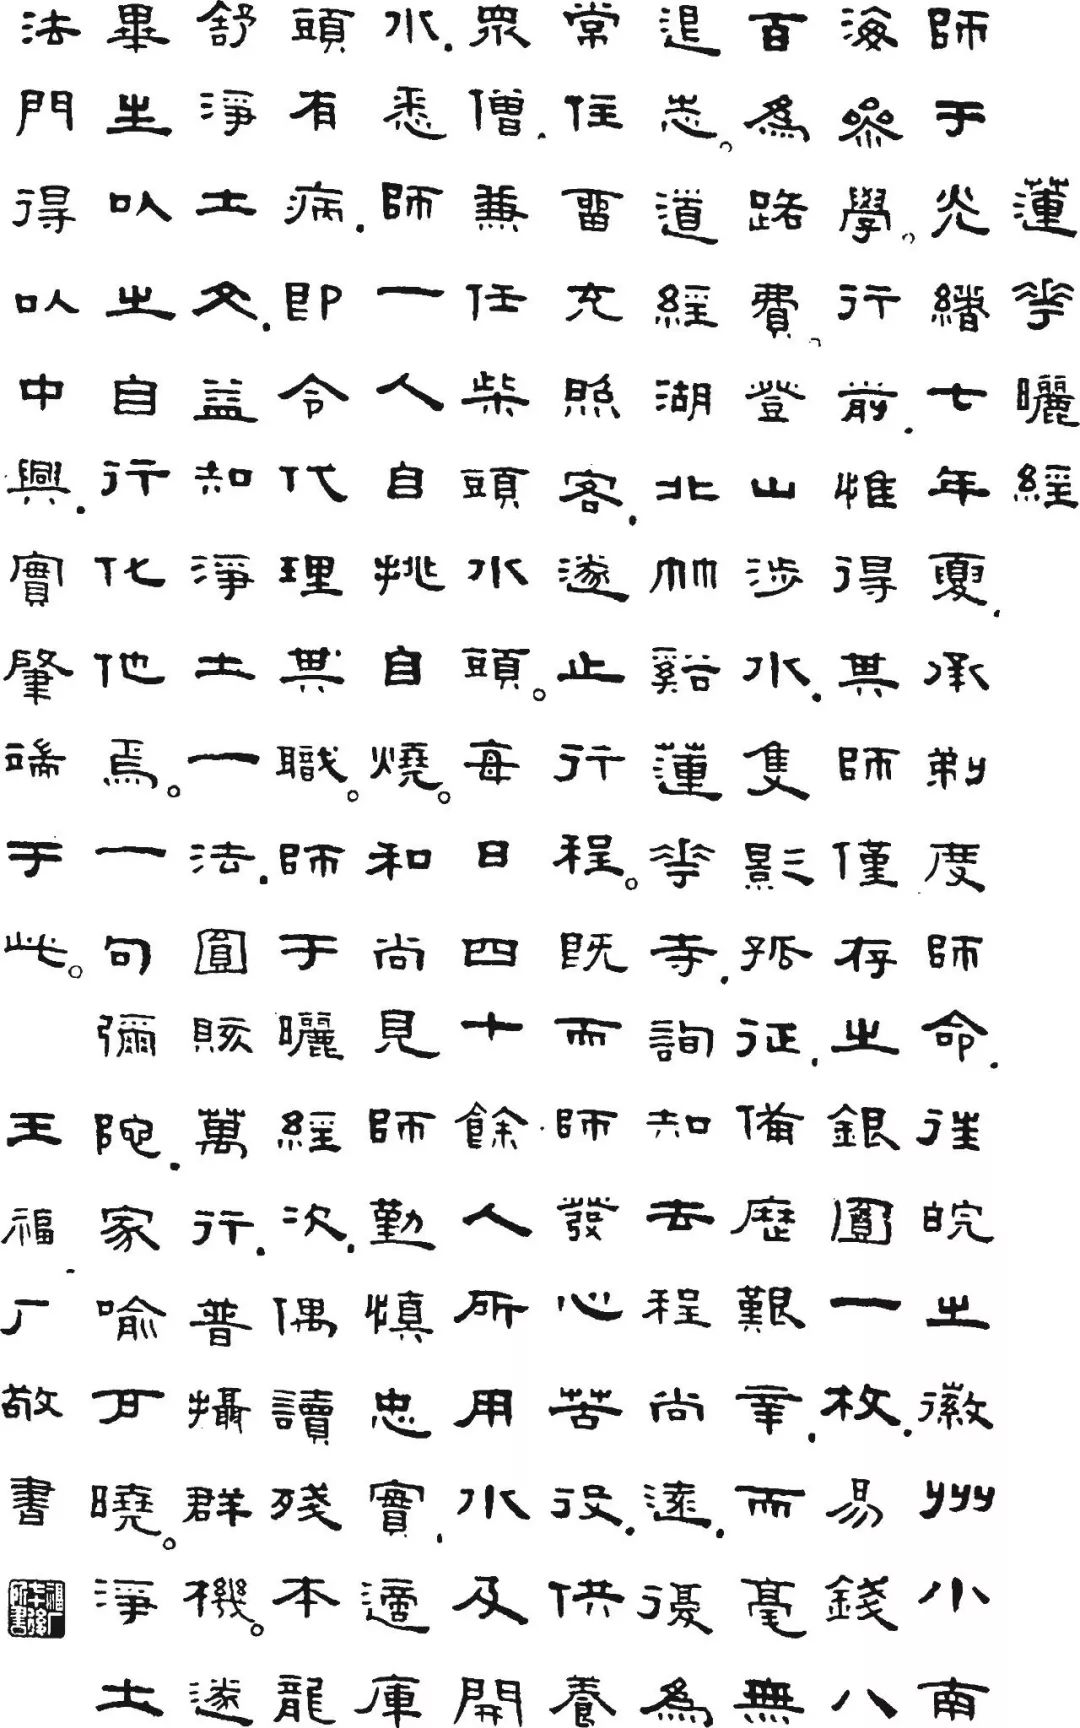 蓮華曬經
師于光緒七年夏.承剃度師命.往皖之徽州小南
海參學。行前.惟得其師僅存之銀圓一枚.易錢八
百為路費。登山涉水.隻影孤征.備歷艱辛.而毫無
退志。道經湖北竹谿蓮華寺.詢知去程尚遠.復為
常住畱充照客.遂止行程。既而師發心苦役.供養
眾僧.兼任柴頭水頭。每日四十餘人所用水及開
水.悉師一人自挑自燒。和尚見師勤慎忠實.適庫
頭有病.即令代理其職。師于曬經次.偶讀殘本龍
舒淨土文.益知淨土一法.圓賅萬行.普攝群機。遂
畢生以之自行化他焉。一句彌陀.家喻戶曉。淨土
法門得以中興.實肇端于此。
王福厂敬書
福厂七十後所書